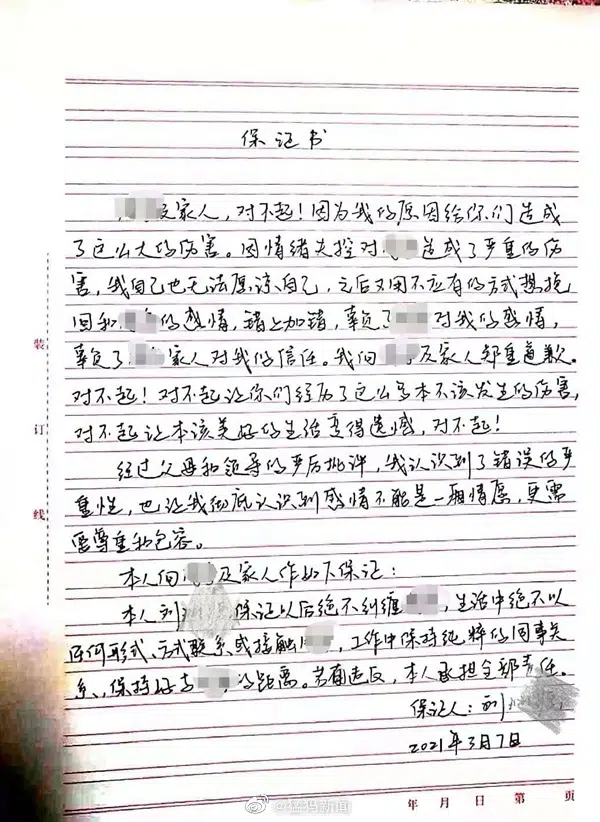 保证书
及家人，对不起！因为我的原因给你们造成
了这么大的伤害。因情绪失控对 造成了严重的伤
害，我自己也无法原谅自己，之后又用不应有的方式想挽
回和 的感情，错上加错，辜负了 对我的感情，
辜负了 家人对我的信任。我向 及家人郑重道歉。
对不起！对不起让你们经历了这么多本不该发生的伤害，
对不起让本该美好的生活变得遗憾，对不起！
经过父母和领导的严厉批评，我认识到了错误的严
重性，也让我彻底认识到感情不能是一厢情愿，更需
要尊重和包容。
本人向 及家人作如下保证：
本人刘 保证以后绝不纠缠 ，生活中绝不以
任何形式、方式联系或接触 ，工作中保持纯粹的同事关
系、保持好与 的距离。若有违反，本人承担全部责任。
保证人：刘
2021年3月7日
装
订
线
年 月 日 第 页
@猛犸新闻